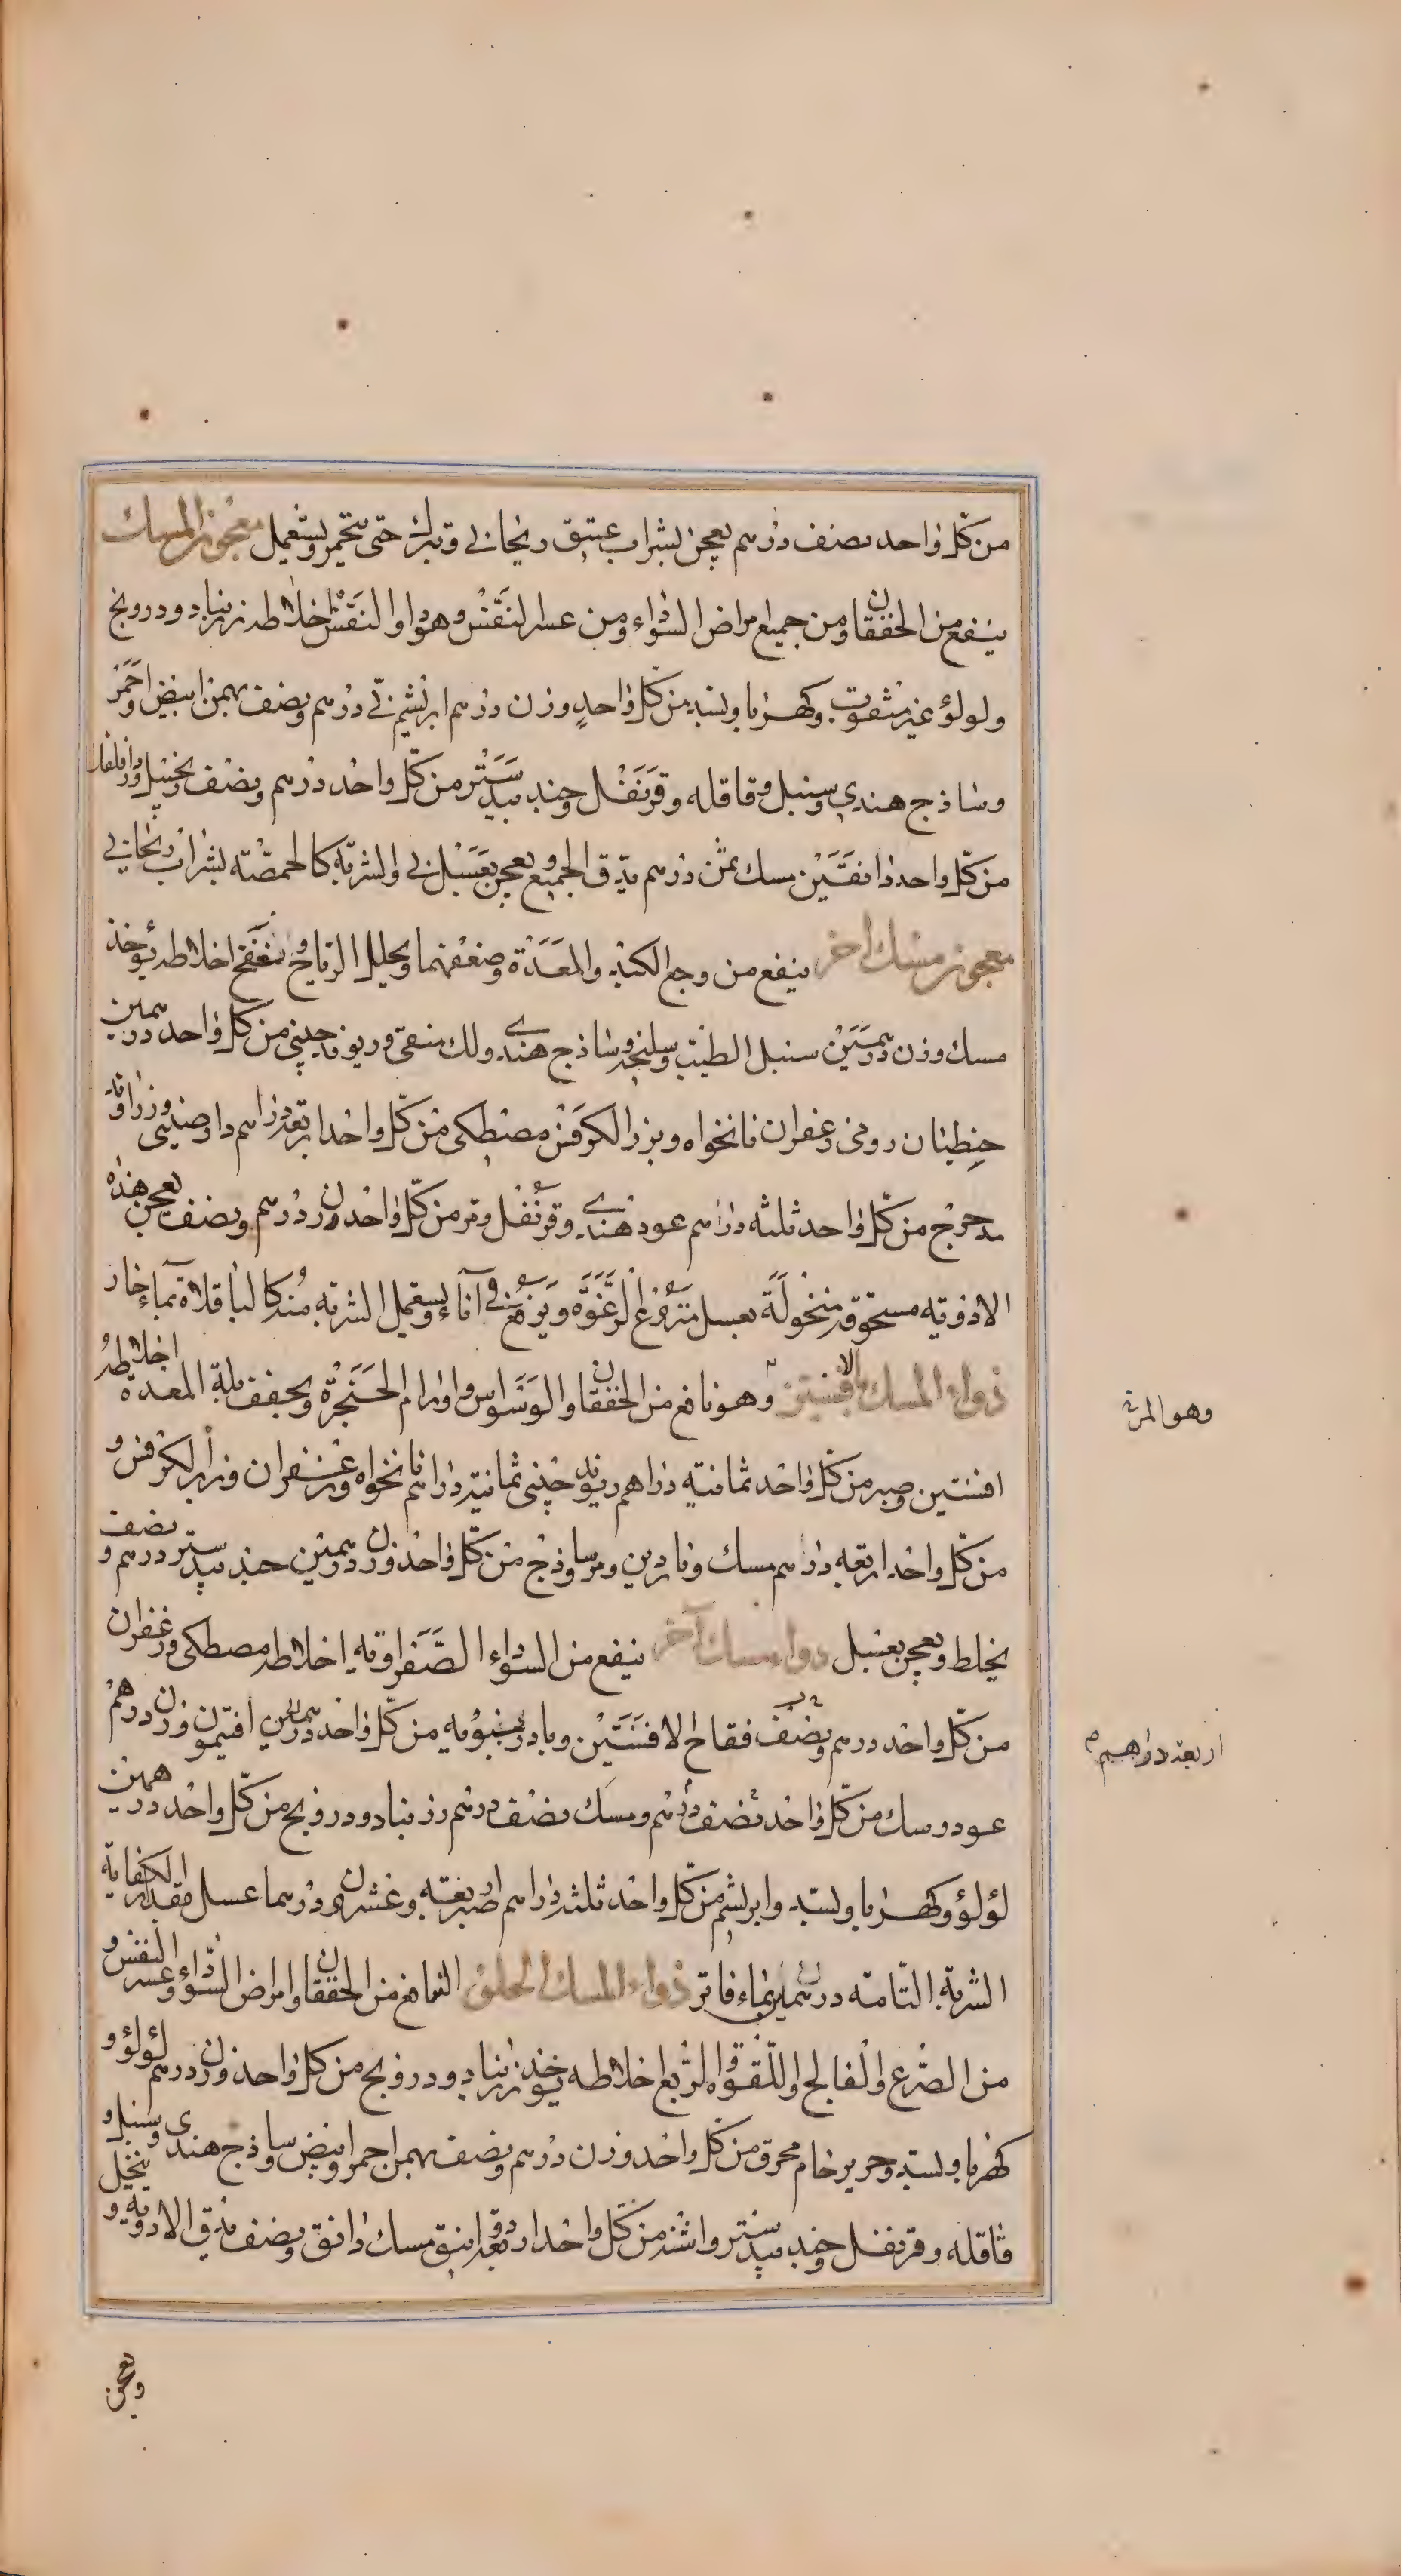 من كل واحد نصف درهم يعجن بشراب عتيق ريحاني ويترك حتى يتخمر ويستعمل معجون المسك
ينفع من الخفقان ومن جميع امراض السوداء ومن عسر النفس وهو دواء النفس اخلاطه زرنباد ودرونج
ولولؤ غير مثقوب وكهربا وبسد من كل واحد وزن درهم ابريشم ني درهم ونصف بهمن ابيض واحمر
وساذج هندي وسنبل وقاقله وقرنفل وجند بيدستر من كل واحد درهم ونصف زنجبيل ودارفلفل
من كل واحد دانقين مسك ثمن درهم يدق الجميع ويعجن بعسل ني والشربة كالحمصة بشراب ريحاني
معجون مسك اخر ينفع من وجع الكبد والمعدة وضعفهما ويحلل الرياح وينفخ اخلاطه يؤخذ
مسك وزن درهمين سنبل الطيب وسليخه وساذج هندي ولك منقى وريوند صيني من كل واحد درهمين
جنطيان رومي وزعفران نانخواه وبزر الكرفس مصطكى من كل واحد اربعة دراهم دارصيني وزراوند
مدحرج من كل واحد ثلثه دراهم عود هندي وقرنفل ومر من كل واحد وزن درهم ونصف يعجن هذه
الادويه مسحوقة منخولة بعسل منزوع الرغوة ويرفع في آناء ويستعمل الشربه منه كالباقلاة بماء حار
دواء المسك بالافسنتين وهو نافع من الخفقان والوسواس واورام الحنجرة ويجفف بلة المعدة اخلاطه
افسنتين وصبر من كل واحد ثمانية دراهم ريوند صيني ثمانية دراهم نانخواه وزعفران وبزر الكرفس و
من كل واحد اربعه دراهم مسك وناردين ومر وساذج من كل واحد وزن درهمين جند بيدستر درهم ونصف
يخلط ويعجن بعسل دواء مسك آخر ينفع من السوداء الصفراويه اخلاطه مصطكى وزعفران
من كل واحد درهم ونصف فقاح الافسنتين وبادرنبويه من كل واحد درهمين افتيمون وزن درهم
عود وسك من كل واحد نصف درهم ومسك نصف درهم زرنباد ودرونج من كل واحد درهمين
لؤلؤ وكهربا وبسد وابريشم من كل واحد ثلثه دراهم صبر اربعه وعشرون درهما عسل مقدار الكفاية
الشربة التامة درهمين بماء فاتر دواء المسك الحلو النافع من الخفقان وامراض السوداء وعسر النفس و
من الصرع والفالج واللقوه والربع اخلاطه يؤخذ زرنباد ودرونج من كل واحد وزن درهم لؤلؤ و
كهربا وبسد وحرير خام محرق من كل واحد وزن درهم ونصف بهمن احمر وابيض وساذج هندي وسنبل و
قاقله وقرنفل وجند بيدستر واشنه من كل واحد اربعة دوانيق مسك دانق ونصف يدق الادوية وينخل و
ويعجن
وهو المرة
اربعة دراهم